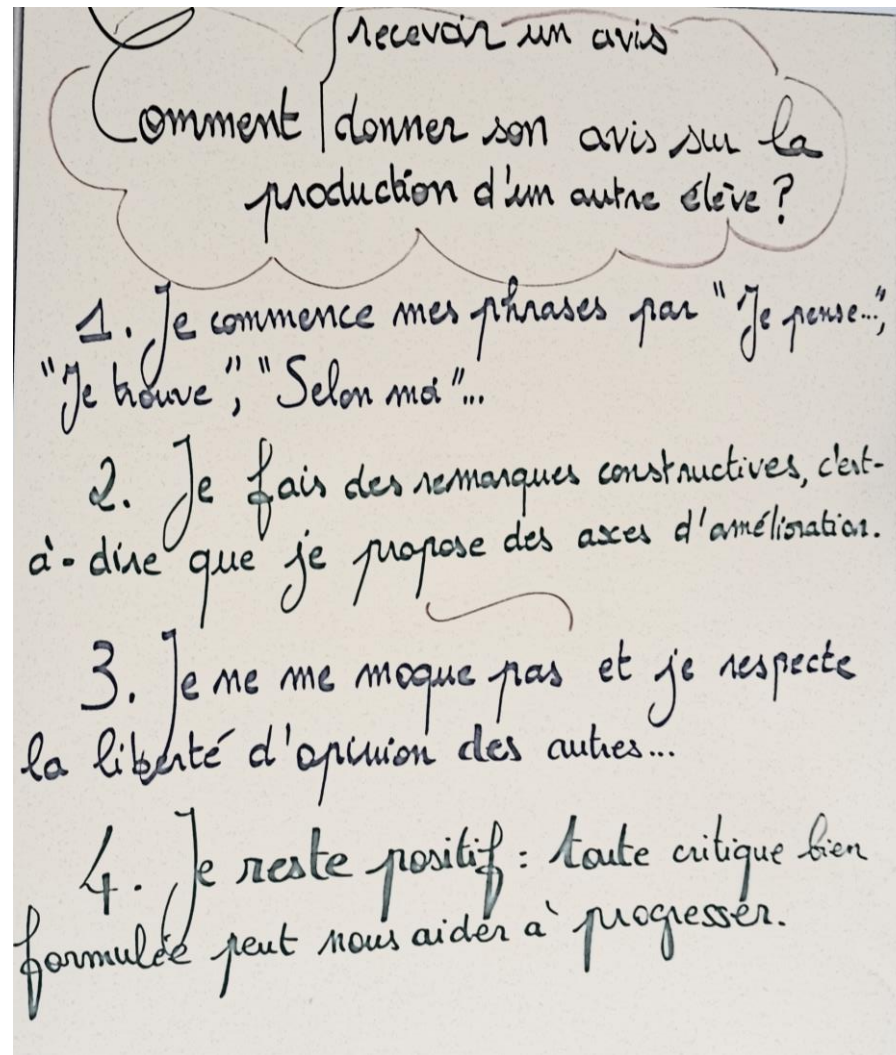 recevoir un avis
Comment donner son avis sur la
production d'un autre élève ?
1. Je commence mes phrases par "Je pense...",
"Je trouve", "Selon moi"...
2. Je fais des remarques constructives, c'est-
à-dire que je propose des axes d'amélioration.
3. Je ne me moque pas et je respecte
la liberté d'opinion des autres...
4. Je reste positif : toute critique bien
formulée peut nous aider à progresser.